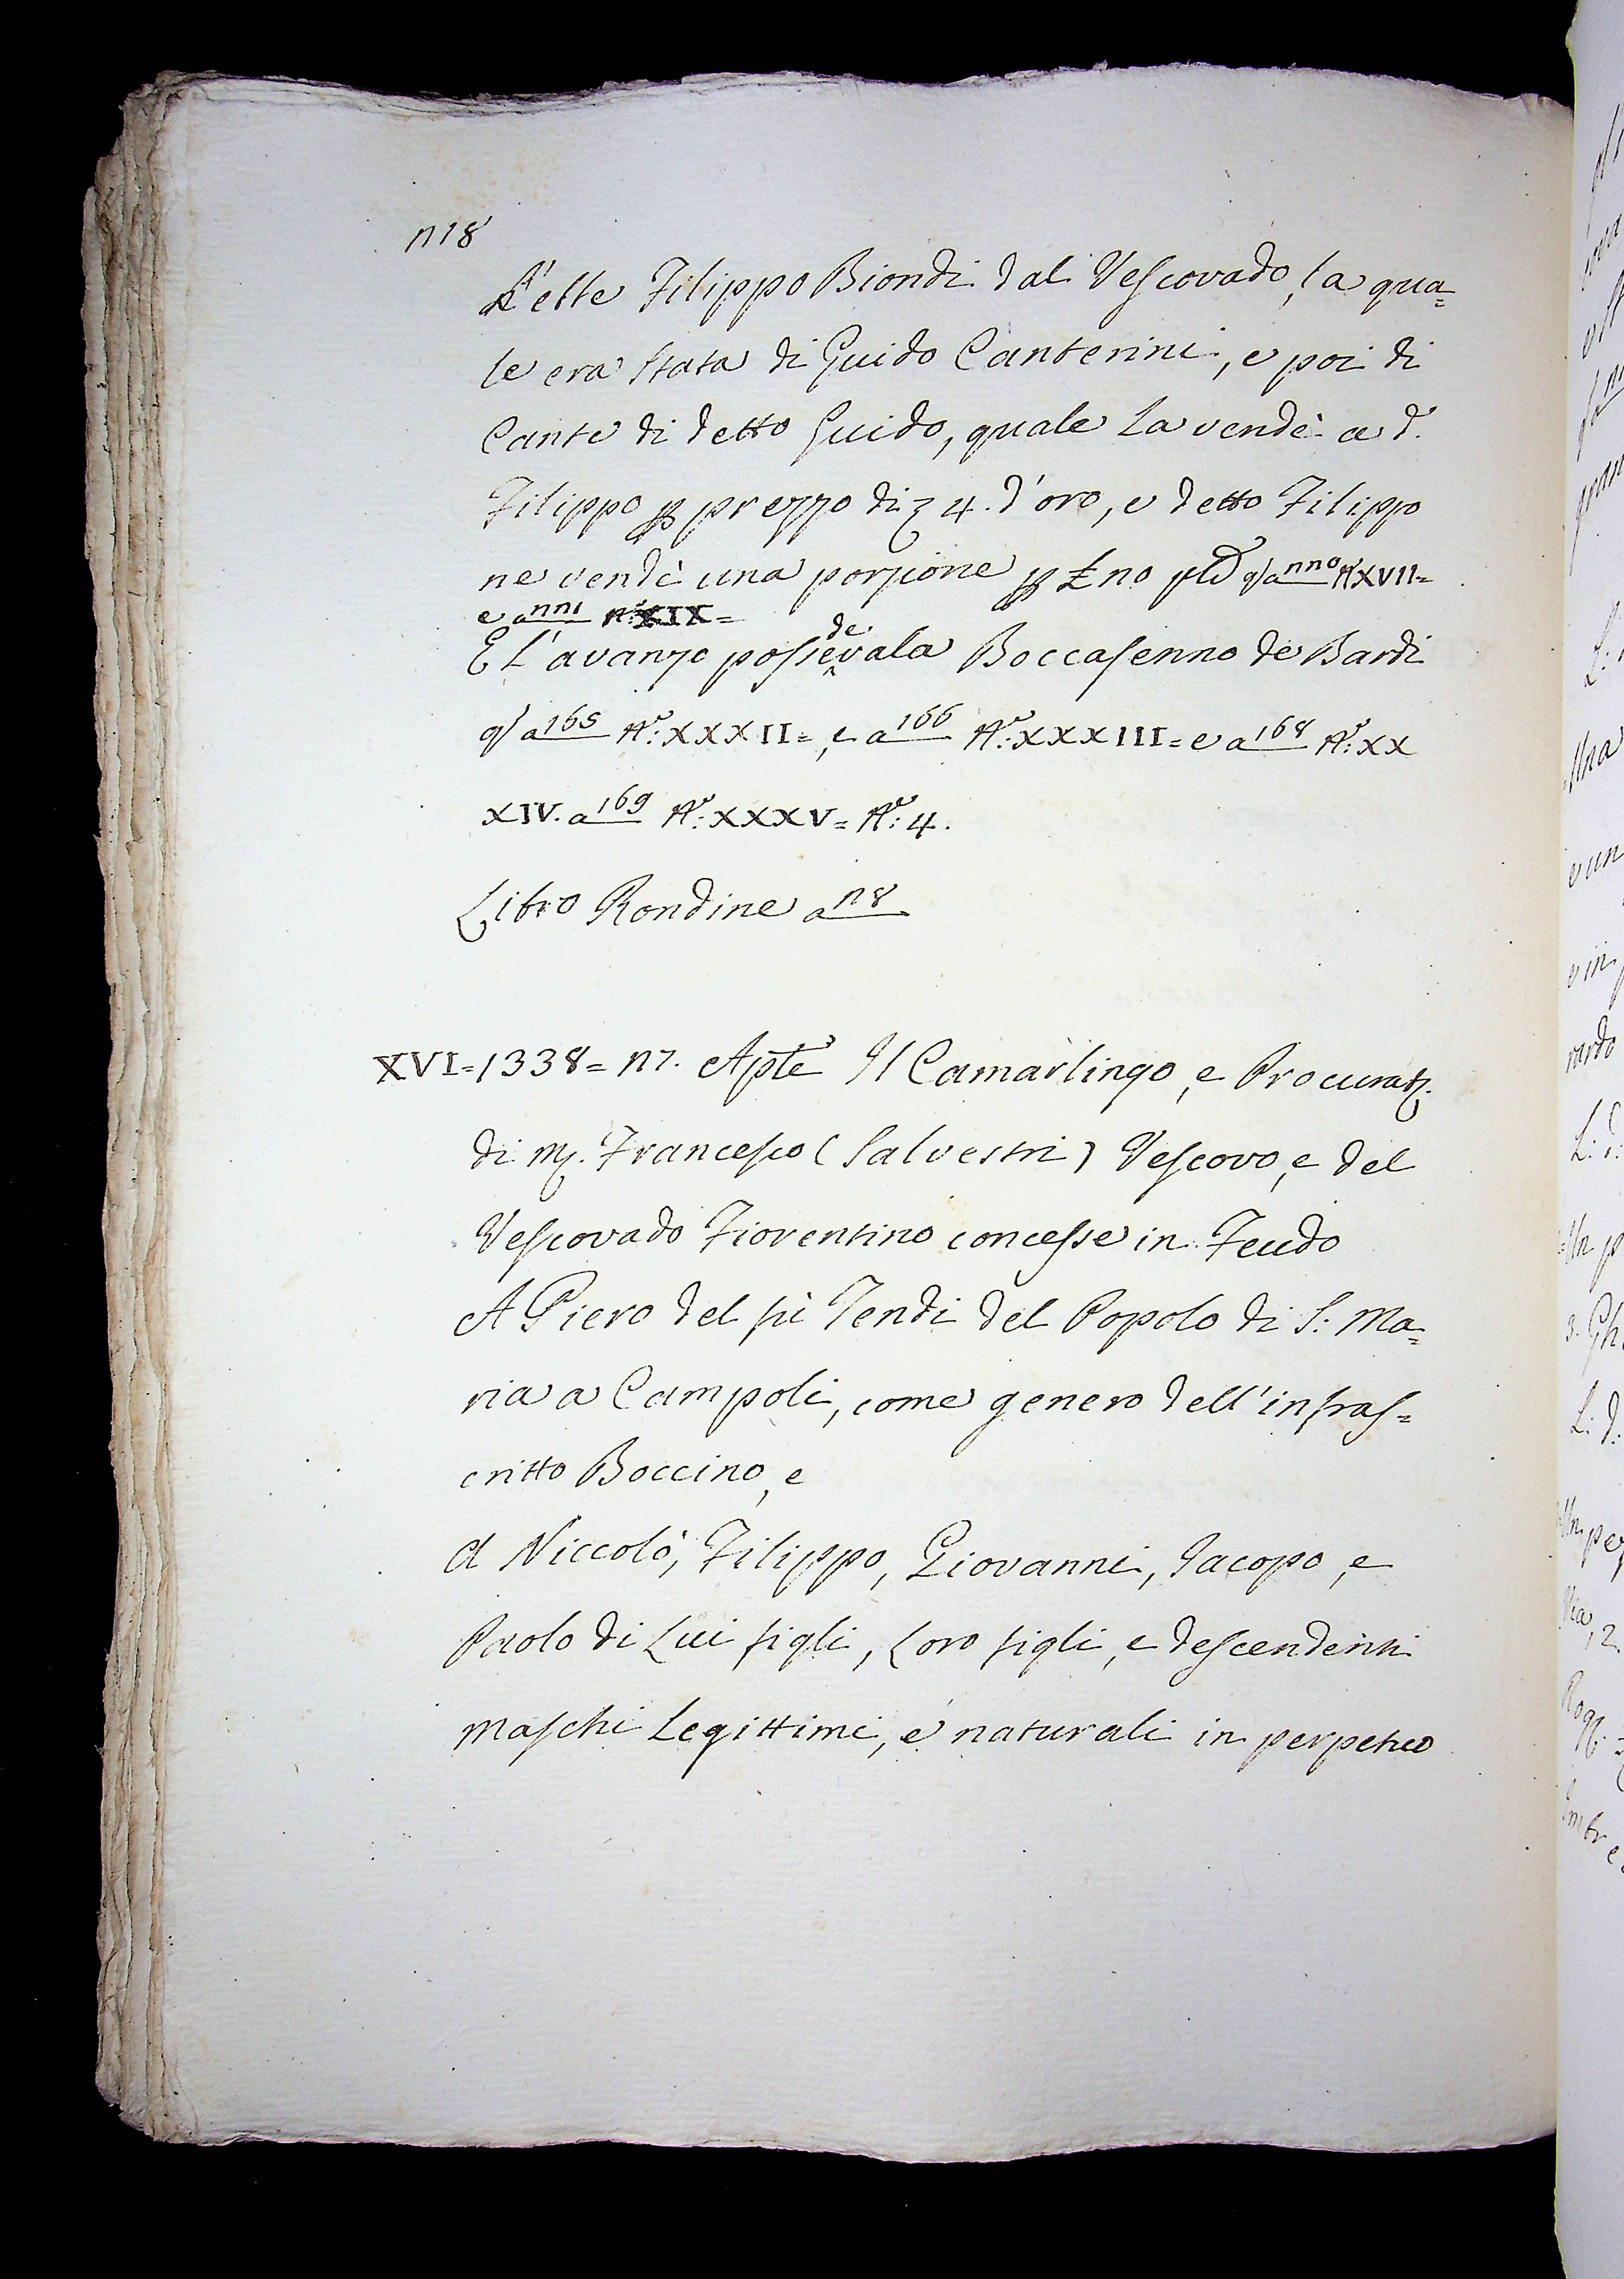 118
L'ebbe Filippo Biondi dal Vescovado, la qua=
le era stata di Guido Canterini, e poi di
Cante di detto Guido, quale la vendè a d.
Filippo prezzo di 4. d'oro, e detto Filippo
ne vendè una porzione XVII=
e a
E l'avanzo possedevala Boccasenno de Bardi
a 165 N: XXXII=, e a 166 N: XXXIII= e a 168 N: XX
XIV. a 169 N: XXXV= N: 4.
Libro Rondine a 118
XVI=1338= 17. Aple Il Camarlingo, e Procurat.
di M. Francesco (Salvestri) Vescovo, e del
Vescovado Fiorentino concesse in Feudo
A Piero del fù Tendi del Popolo di S: Ma=
ria a Campoli, come genero dell'infras=
critto Boccino, e
A Niccolò, Filippo, Giovanni, Jacopo, e
Paolo di Lui figli, loro figli, e descendenti
maschi Legittimi, e naturali in perpetuo